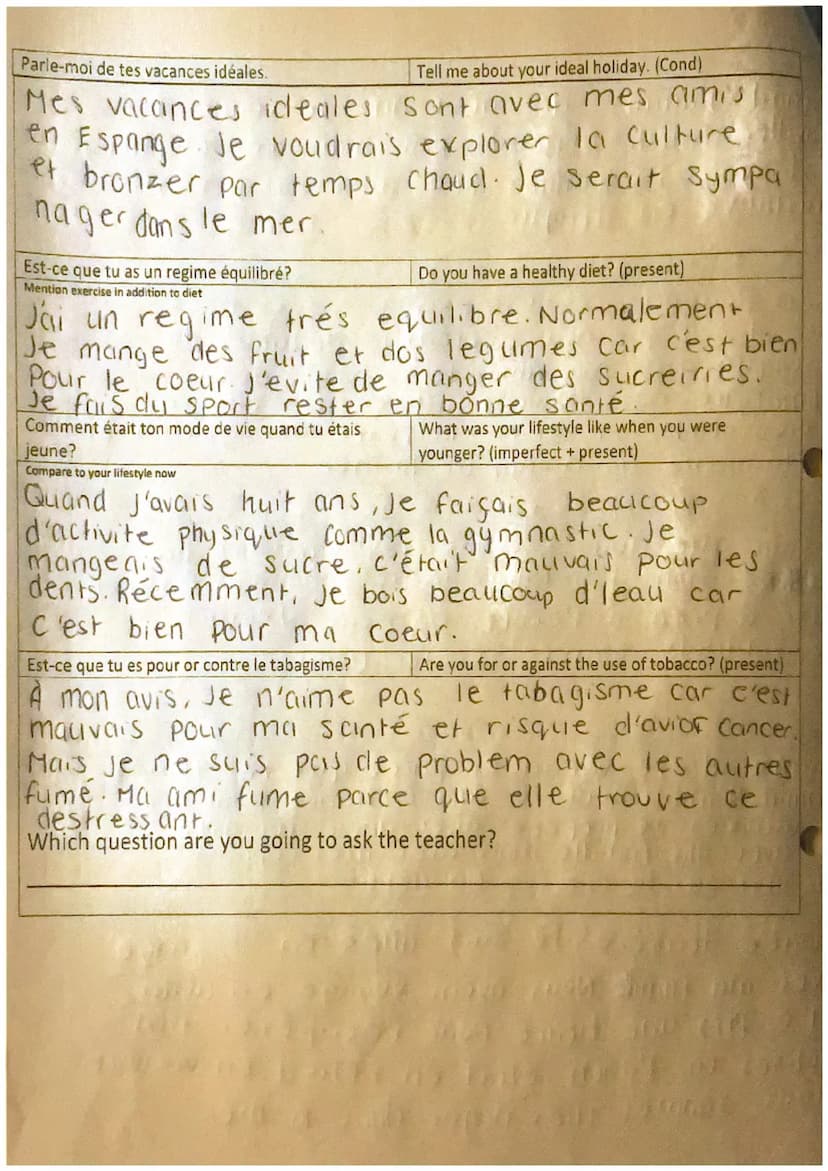 Parle-moi de tes vacances idéales. Tell me about your ideal holiday. (Cond)
Mes vacances ideales sont avec mes amis
en Espange. Je voudrais explorer la culture
et bronzer par temps chaud. Je serait sympa
nager dans le mer.
Est-ce que tu as un regime équilibré? Do you have a healthy diet? (present)
Mention exercise in addition to diet
J'ai un regime trés equilibre. Normalement
Je mange des fruit et dos legumes car c'est bien
Pour le coeur. J'evite de manger des sucreiries.
Je fais du sport rester en bonne santé.
Comment était ton mode de vie quand tu étais What was your lifestyle like when you were
jeune? younger? (imperfect + present)
Compare to your lifestyle now
Quand j'avais huit ans, Je faiçais beaucoup
d'activite physique comme la gymnastic. Je
mangeais de sucre, c'était mauvais pour les
dents. Récemment, Je bois beaucoup d'leau car
C'est bien pour ma coeur.
Est-ce que tu es pour or contre le tabagisme? Are you for or against the use of tobacco? (present)
À mon avis, Je n'aime pas le tabagisme car c'est
mauvais pour ma santé et risque d'avior cancer.
Mais je ne suis pas de problem avec les autres
fumé. Ma ami fume parce que elle trouve ce
destressant.
Which question are you going to ask the teacher?